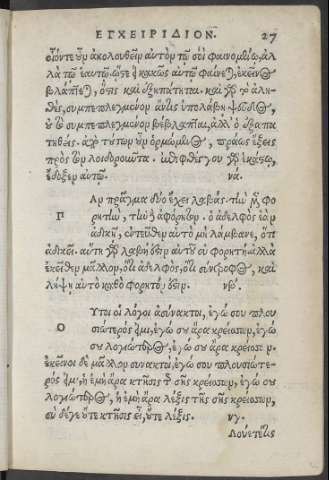 ΕΓΧΕΙΡΙΔΙΟΝ. 27
οἷόντε οὖν ἀκολουθεῖν αὐτὸν τῷ σοὶ φαινομένῳ, ἀλ
λὰ τῷ ἑαυτῷ. ὥστε εἰ κακῶς αὐτῷ φαίνεται, ἐκεῖνος
βλάπτεται, ὅστις καὶ ἐξηπάτηται. καὶ γὰρ τὸ ἀλη-
θὲς συμπεπλεγμένον ἄν τις ὑπολάβῃ ψεῦδος,
οὐ τὸ συμπεπλεγμένον βέβλαπται, ἀλλ' ὁ ἐξαπα
τηθείς. ἀπὸ τούτων οὖν ὁρμώμενος, πράως ἕξεις
πρὸς τὸν λοιδοροῦντα. ἐπιφθέγγου γὰρ ἐφ' ἑκάστῳ,
ἔδοξεν αὐτῷ. να.
Π Αν πρᾶγμα δύο ἔχει λαβάς. τὴν μὲν φο
ρητήν, τὴν δὲ ἀφόρητον. ὁ ἀδελφὸς ἐὰν
ἀδικῇ, ἐντεῦθεν αὐτὸ μὴ λάμβανε, ὅτι
ἀδικεῖ. αὕτη γὰρ λαβή ἐστιν αὐτοῦ οὐ φορητή. ἀλλὰ
ἐκεῖθεν μᾶλλον, ὅτι ἀδελφὸς, ὅτι σύντροφος, καὶ
λήψῃ αὐτὸ καθὸ φορητόν ἐστιν. νβ.
Ο Υτοι οἱ λόγοι ἀσύνακτοι, ἐγώ σου πλου
σιώτερός εἰμι, ἐγώ σου ἄρα κρείσσων, ἐγώ
σου λογιώτερος, ἐγώ σου ἄρα κρείσσων.
ἐκεῖνοι δὲ μᾶλλον συνακτοί, ἐγώ σου πλουσιώτε-
ρός εἰμι, ἡ ἐμὴ ἄρα κτῆσις τῆς σῆς κρείσσων, ἐγώ σου
λογιώτερος, ἡ ἐμὴ ἄρα λέξις τῆς σῆς κρείσσων,
σὺ δέ γε οὔτε κτῆσις εἶ, οὔτε λέξις. νγ.
Λούεταί τις